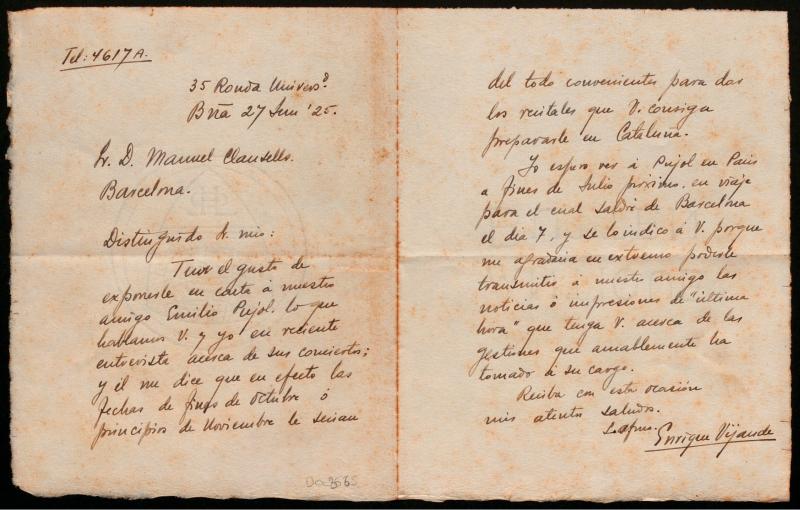 Tel: 4617 A.
35 Ronda Univers.d
Bña 27 Jun '25.
Sr. D. Manuel Clausells.
Barcelona.
Distinguido Sr. mio:
Tuve el gusto de
exponerle en carta á nuestro
amigo Emilio Pujol, lo que
hablamos V. y yo en reciente
entrevista acerca de sus conciertos;
y él me dice que en efecto las
fechas de fines de Octubre ó
principios de Noviembre le serian
del todo convenientes para dar
los recitales que V. consiga
prepararle en Cataluña.
Yo espero ver á Pujol en Paris
a fines de Julio próximo, en viaje
para el cual saldré de Barcelona
el dia 7, y se lo indico á V. porque
me agradaria en extremo poderle
transmitir á nuestro amigo las
noticias ó impresiones de "última
hora" que tenga V. acerca de las
gestiones que amablemente ha
tomado á su cargo.
Reciba con esta ocasión
mis atentos saludos.
S. afmo.
Enrique Vijande